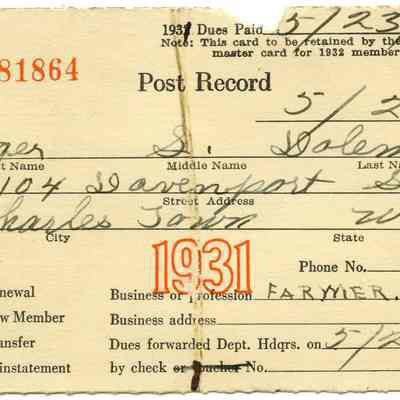 1932 Dues Paid 5/23
Note: This card to be retained by the
master card for 1932 member
81864
Post Record
5/2
ger S. Dolem
t Name Middle Name Last N
104 Davenport S
Street Address
Charles Town W
City State
1931
Phone No.
newal Business or profession FARMER.
w Member Business address
ansfer Dues forwarded Dept. Hdqrs. on 5/2
instatement by check or voucher No.